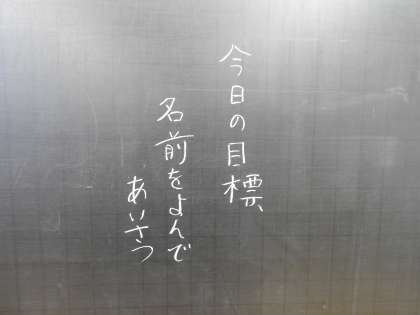 今日の目標
名前をよんで
あいさつ